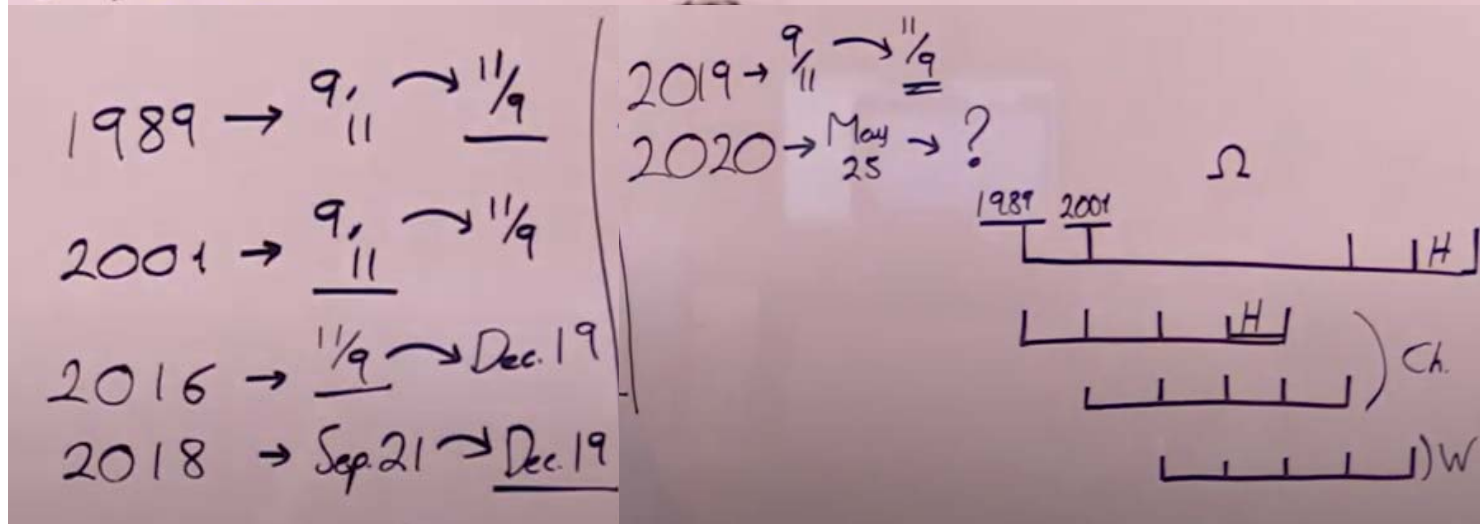 1989 → 9/11 → 11/9
2001 → 9/11 → 11/9
2016 → 11/9 → Dec. 19
2018 → Sep. 21 → Dec. 19
2019 → 9/11 → 11/9
2020 → May 25 → ?
Ω
1989 2001
H
H
Ch.
W